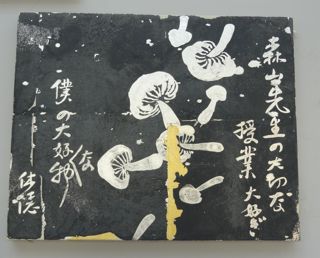 森山先生の大切な
授業 大好き
僕の大好物
な